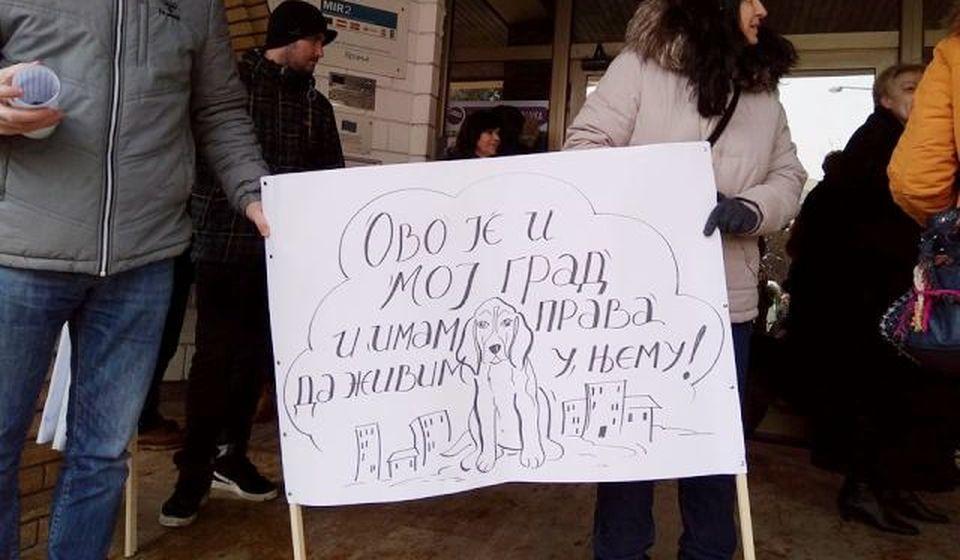 MIR2
Ово је и
мој град
и имам права
да живим у њему!